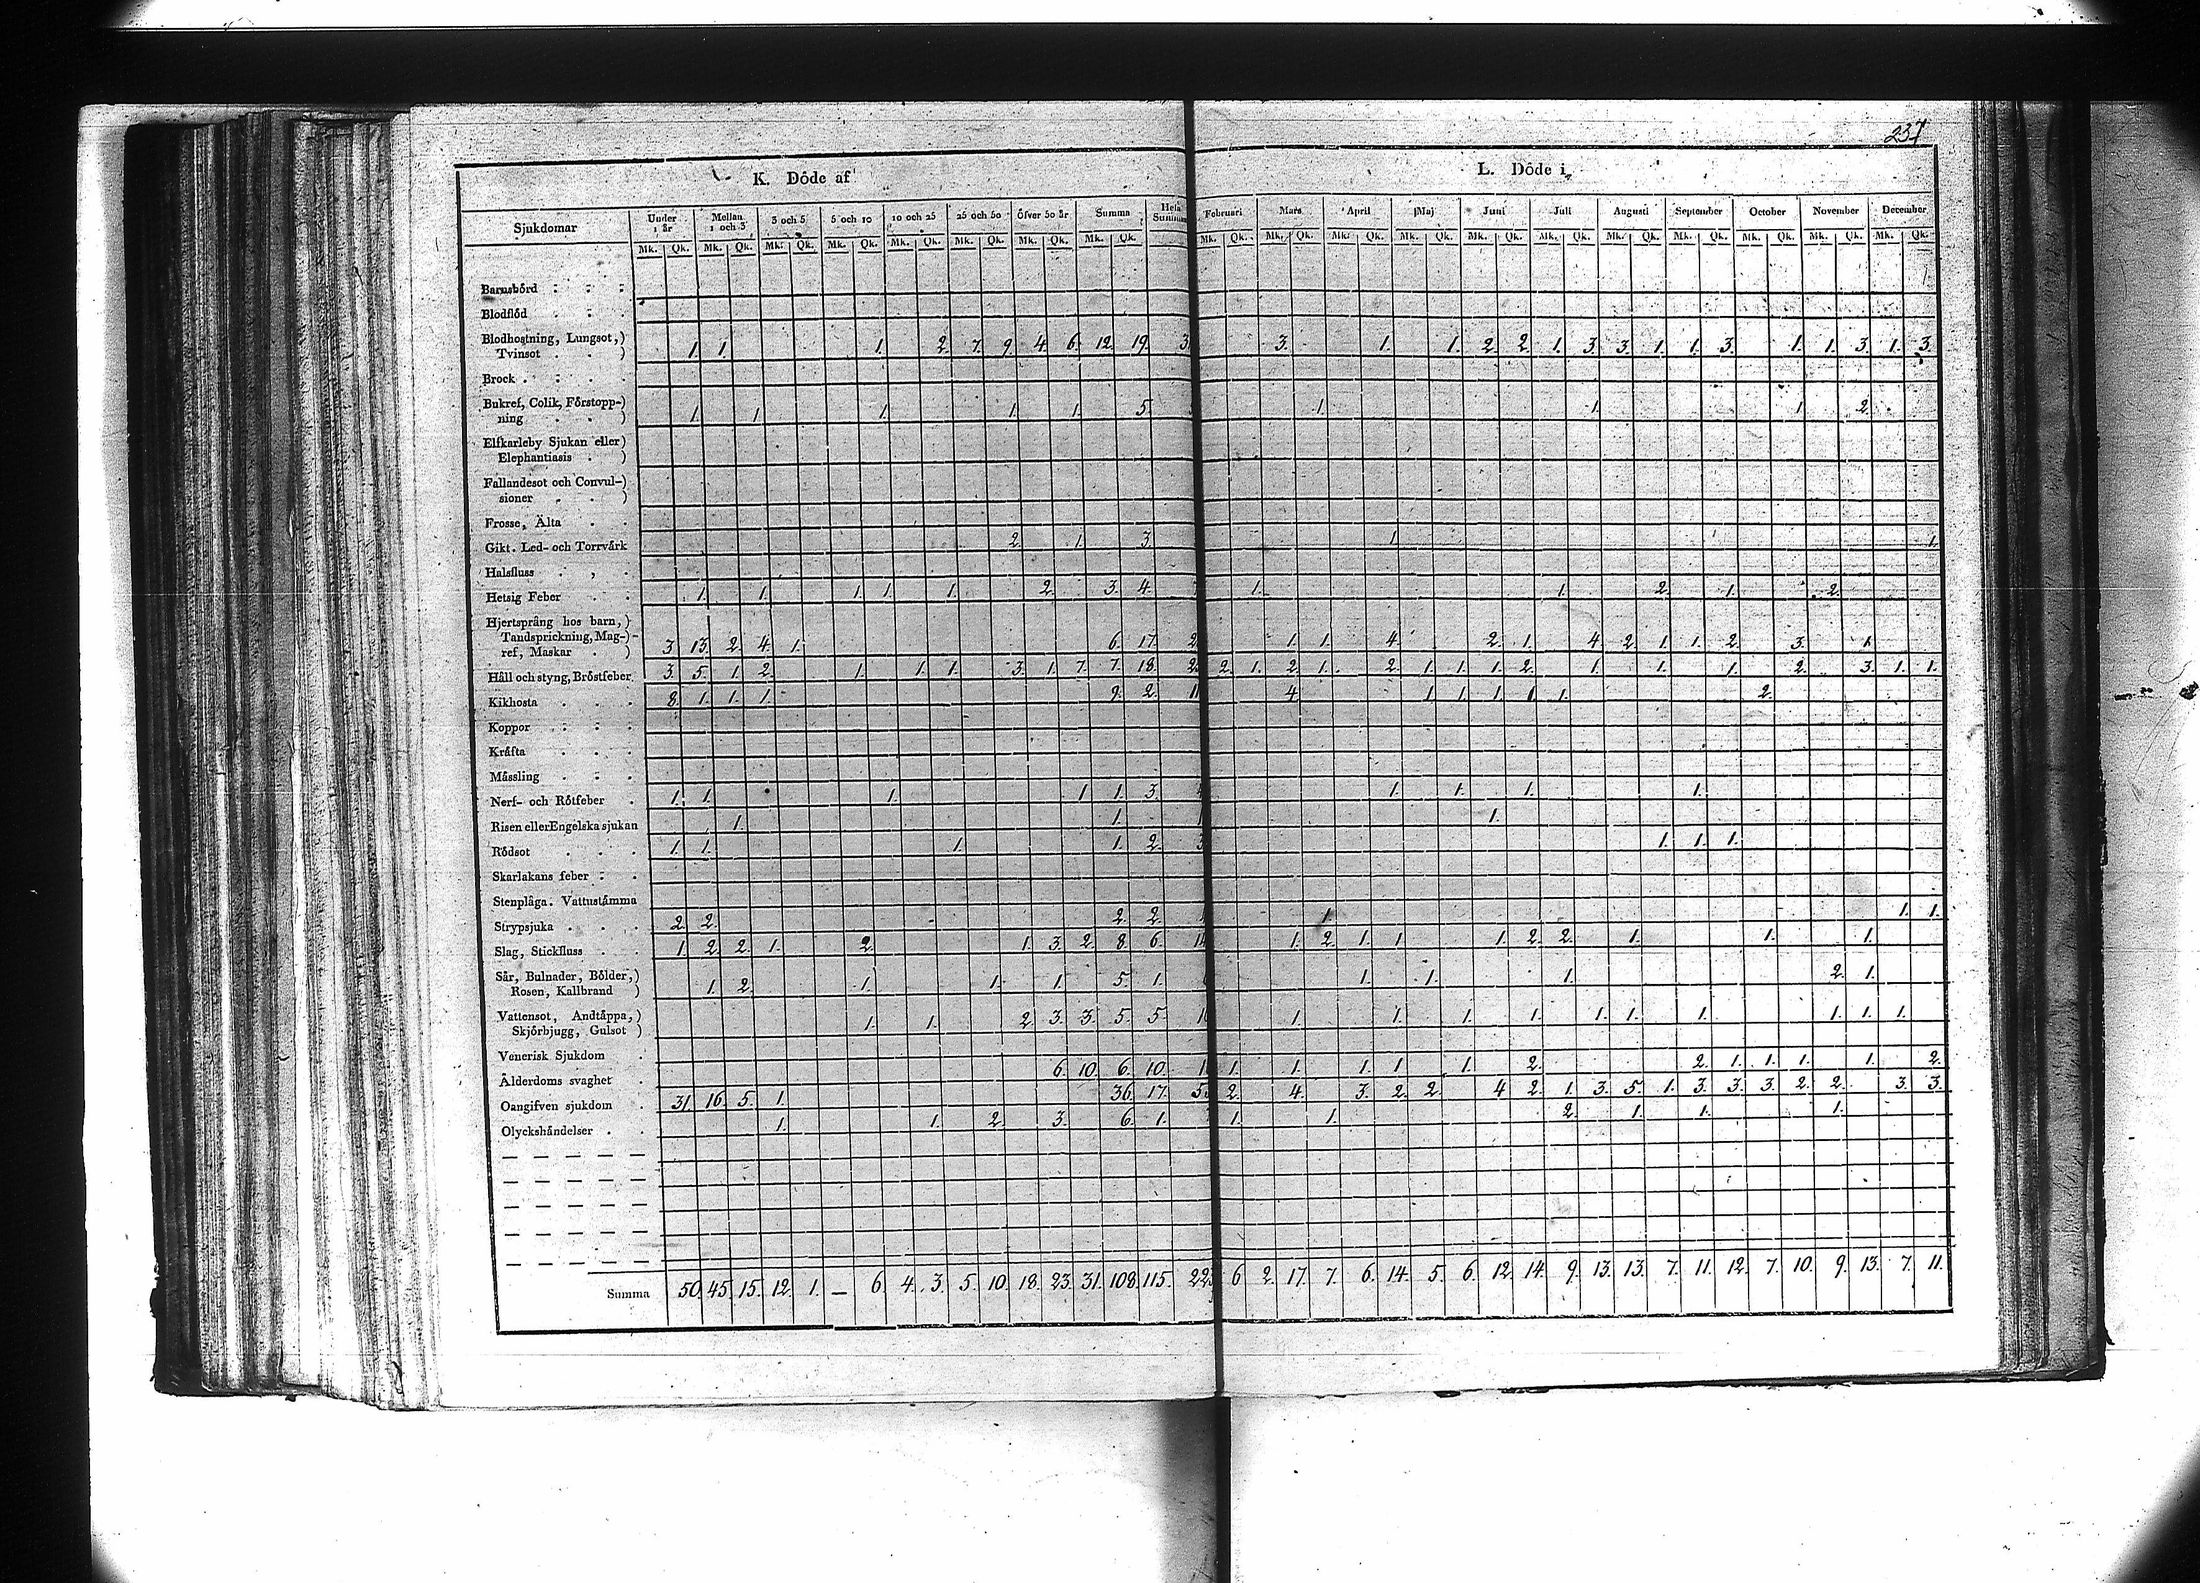 237
K. Döde af
L. Döde i
Sjukdomar Under 1 år Mellan 1 och 3 3 och 5 5 och 10 10 och 25 25 och 50 öfver 50 år Summa Hela Februari Mars April Maj Juni Juli Augusti September October November December
Mk. Qk. Mk. Qk. Mk. Qk. Mk. Qk. Mk. Qk. Mk. Qk. Mk. Qk. Mk. Qk. Mk. Qk. Mk. Qk. Mk. Qk. Mk. Qk. Mk. Qk. Mk. Qk. Mk. Qk. Mk. Qk. Mk. Qk. Mk. Qk. Mk. Qk.
Barnsbörd
Blodflöd
Blodhostning, Lungsot,)
Tvinsot . . ) 1. 1. 1. 2. 7. 9. 4. 6. 12. 19. 3. 1. 1. 2. 2. 1. 3. 3. 1. 1. 3. 1. 1. 3. 1. 3.
Brock
Bukref, Colik, Förstopp-)
ning . . ) 1. 1. 1. 1. 1. 5. 1. 1. 1. 2.
Elfkarleby Sjukan eller)
Elephantiasis . )
Fallandesot och Convul-)
sioner . . )
Frosse, Älta
Gikt. Led- och Torrvärk 2. 1. 3. 1. 1.
Halsfluss
Hetsig Feber 1. 1. 1. 1. 1. 2. 3. 4. 1. 1. 2. 1. 2.
Hjertsprång hos barn,)
Tandsprickning, Mag-)
ref, Maskar . ) 3 13. 2. 4. 1. 6. 17. 1. 1. 4. 2. 1. 4. 2. 1. 1. 2. 3. 1.
Håll och styng, Bröstfeber. 3. 5. 1. 2. 1. 1. 1. 3. 1. 7. 7. 18. 2. 1. 2. 1. 2. 1. 1. 1. 2. 1. 1. 1. 2. 3. 1. 1.
Kikhosta 8. 1. 1. 1. 9. 2. 4. 1. 1. 1. 1. 1. 2.
Koppor
Kräfta
Mässling
Nerf- och Rötfeber 1. 1. 1. 1 1. 3. 1. 1. 1. 1.
Risen eller Engelska sjukan 1. 1. 1.
Rödsot 1. 1. 1. 1. 2. 3 1. 1. 1.
Skarlakans feber
Stenplåga. Vattustämma
Strypsjuka 2. 2. 2. 2. 1. 1. 1.
Slag, Stickfluss 1. 2. 2. 1. 2. 1. 3. 2. 8. 6. 1. 2. 1. 1. 1. 2. 2. 1. 1. 1.
Sår, Bulnader, Bölder,)
Rosen, Kallbrand ) 1. 2. 1. 1. 1. 5. 1. 1. 1. 1. 2. 1.
Vattensot, Andtäppa,)
Skjörbjugg, Gulsot ) 1. 1. 2. 3. 3. 5. 5. 1. 1. 1. 1. 1. 1. 1. 1. 1. 1.
Venerisk Sjukdom
Ålderdoms svaghet 6. 10. 6. 10. 1. 1. 1. 1. 1. 2. 2. 1. 1. 1. 1. 2.
Oangifven sjukdom 31. 16. 5. 1. 36. 17. 2. 4. 3. 2. 2. 4 2. 1. 3. 5. 1. 3. 3. 3. 2. 2. 3. 3.
Olyckshändelser 1. 1. 2. 3. 6. 1. 1. 1. 2. 1. 1. 1.
Summa 50. 45. 15. 12. 1. — 6. 4. 3. 5. 10. 18. 23. 31. 108. 115. 223 6. 2. 17. 7. 6. 14. 5. 6. 12. 14. 9. 13. 13. 7. 11. 12. 7. 10. 9. 13. 7. 11.